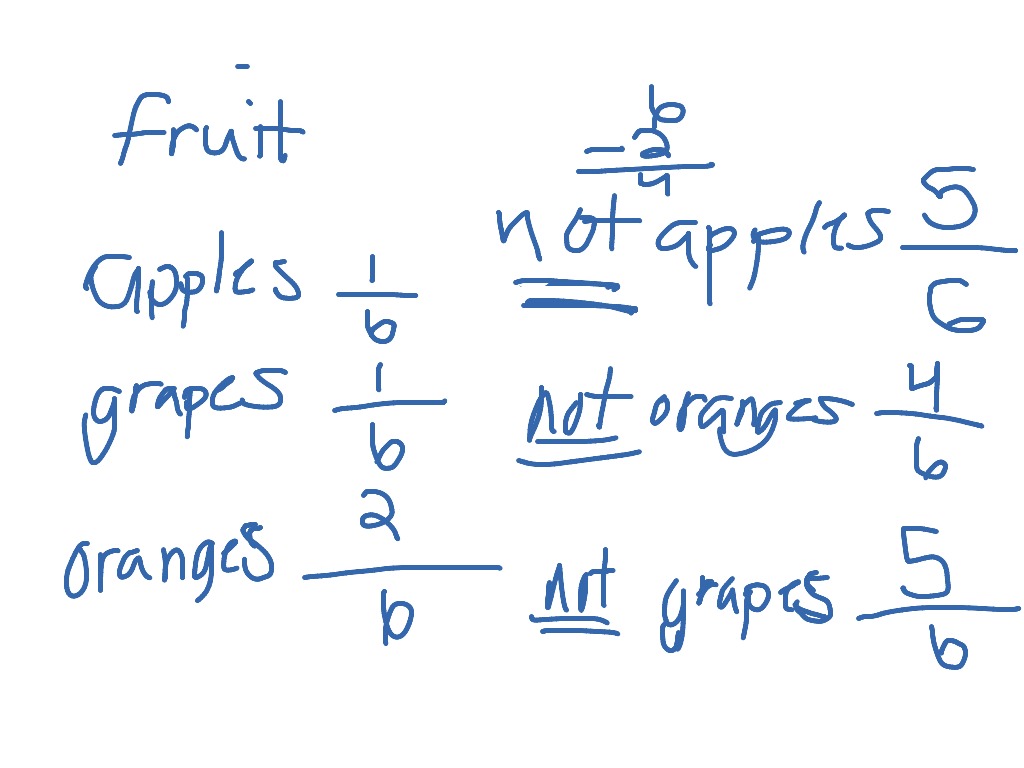 fruit
6
- 2
4
apples 1/6
not apples 5/6
grapes 1/6
not oranges 4/6
oranges 2/6
not grapes 5/6